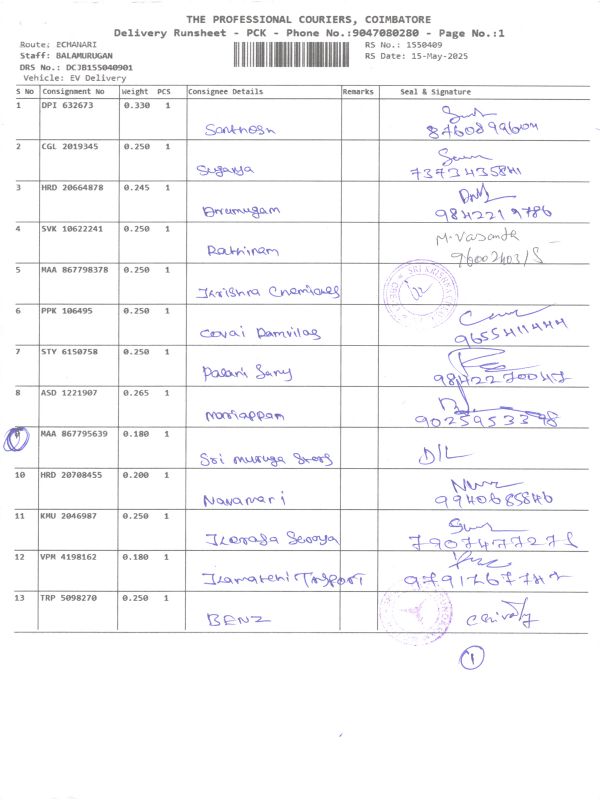 THE PROFESSIONAL COURIERS, COIMBATORE
Delivery Runsheet - PCK - Phone No.:9047080280 - Page No.:1
Route: ECHANARI
RS No.: 1550409
Staff: BALAMURUGAN
RS Date: 15-May-2025
DRS No.: DCJB155040901
Vehicle: EV Delivery
S No Consignment No Weight PCS Consignee Details Remarks Seal & Signature
1 DPI 632673 0.330 1
Santhosh
8760899604
2 CGL 2019345 0.250 1
7373435841
3 HRD 20664878 0.245 1
Arumugam
9842219786
4 SVK 10622241 0.250 1
M. Vasantha
Rathinam
5 MAA 867798378 0.250 1
SRI KRISHNA
Krishna Chemicals
6 PPK 106495 0.250 1
Covai Ramvilas
9655411444
7 STY 6150758 0.250 1
Palani Samy
9842270047
8 ASD 1221907 0.265 1
Mariappan
9025953398
9 MAA 867795639 0.180 1
Sri Muruga Stores D/L
10 HRD 20708455 0.200 1
Navamari
9940685846
11 KMU 2046987 0.250 1
7907477271
12 VPM 4198162 0.180 1
9791267742
13 TRP 5098270 0.250 1
BENZ
1